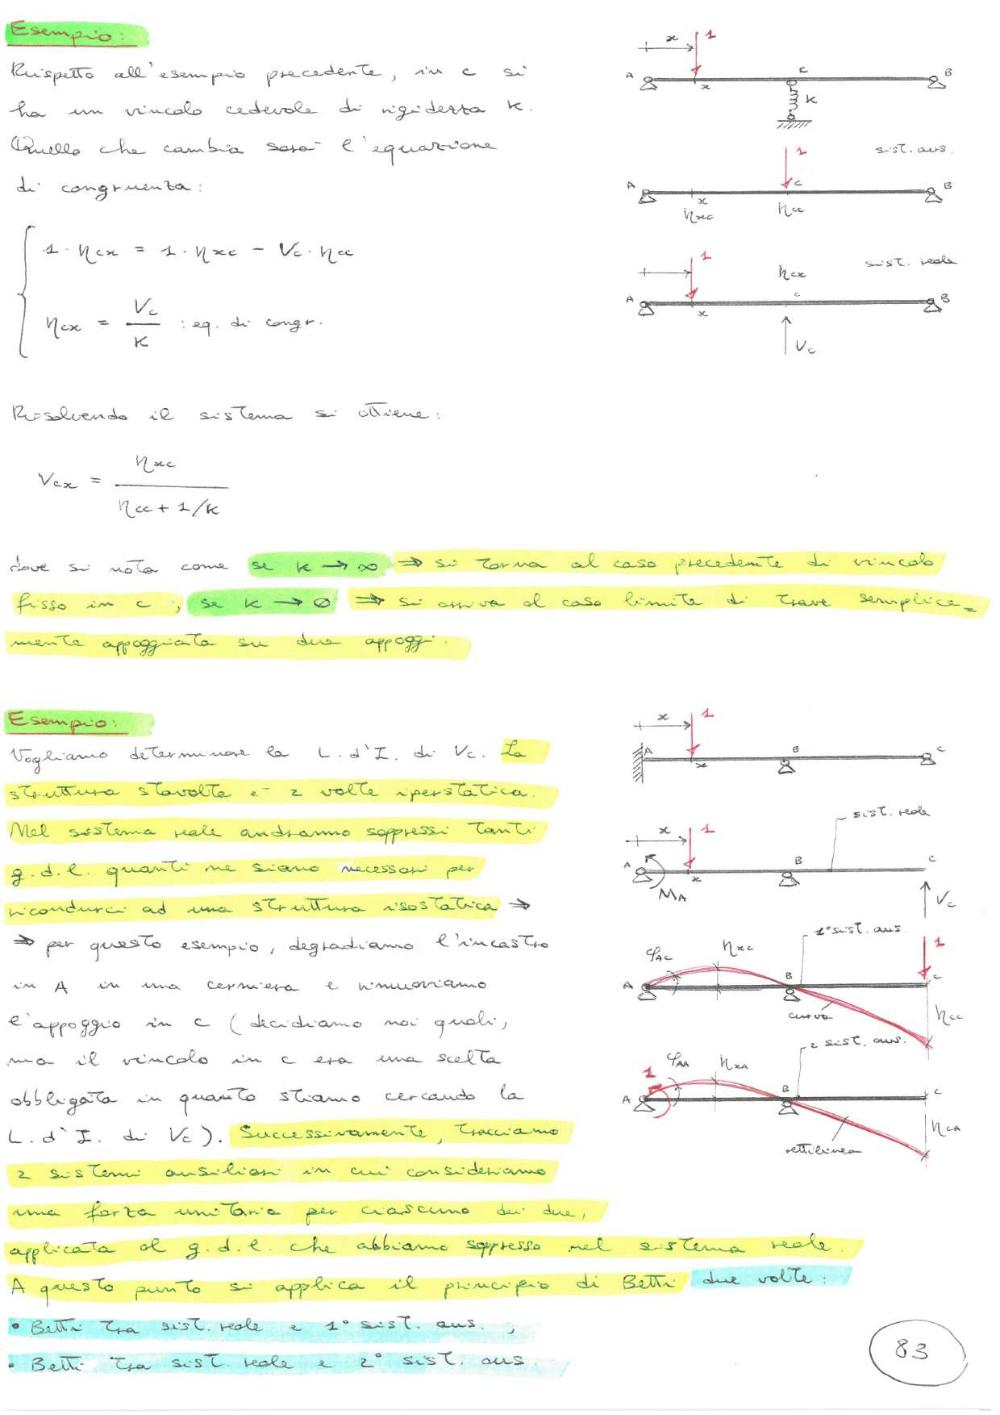 Esempio:
Rispetto all'esempio precedente, in c si
ha un vincolo cedevole di rigidezza K.
Quello che cambia sarà l'equazione
di congruenza:
1 · ηcx = 1 · ηxc - Vc · ηcc
ηcx = Vc / K : eq. di congr.
x 1
A x C B
K
1 sist. aus.
A x C B
ηxc ηcc
1 ηcx sist. reale
A x C B
Vc
Risolvendo il sistema si ottiene:
Vcx = ηxc / ηcc + 1/K
dove si nota come se K → ∞ ⇒ si torna al caso precedente di vincolo
fisso in c; se K → 0 ⇒ si arriva al caso limite di trave semplice=
mente appoggiata su due appoggi.
Esempio:
Vogliamo determinare la L. d'I. di Vc. La
struttura stavolta è 2 volte iperstatica.
Nel sistema reale andranno soppressi tanti
g.d.l. quanti ne siano necessari per
ricondurci ad una struttura isostatica ⇒
⇒ per questo esempio, degradiamo l'incastro
in A in una cerniera e rimuoviamo
l'appoggio in c (decidiamo noi quali,
ma il vincolo in c era una scelta
obbligata in quanto stiamo cercando la
L. d'I. di Vc). Successivamente, tracciamo
2 sistemi ausiliari in cui consideriamo
una forza unitaria per ciascuno dei due,
applicata al g.d.l. che abbiamo soppresso nel sistema reale.
A questo punto si applica il principio di Betti due volte:
• Betti tra sist. reale e 1° sist. aus. ;
• Betti tra sist. reale e 2° sist. aus.
x 1
A x B C
sist. reale
x 1
A x B C
MA Vc
1° sist. aus. 1
φAC ηxc
A B C
curva ηcc
2 sist. aus.
1 φAA ηxA
A B C
rettilinea ηcA
83